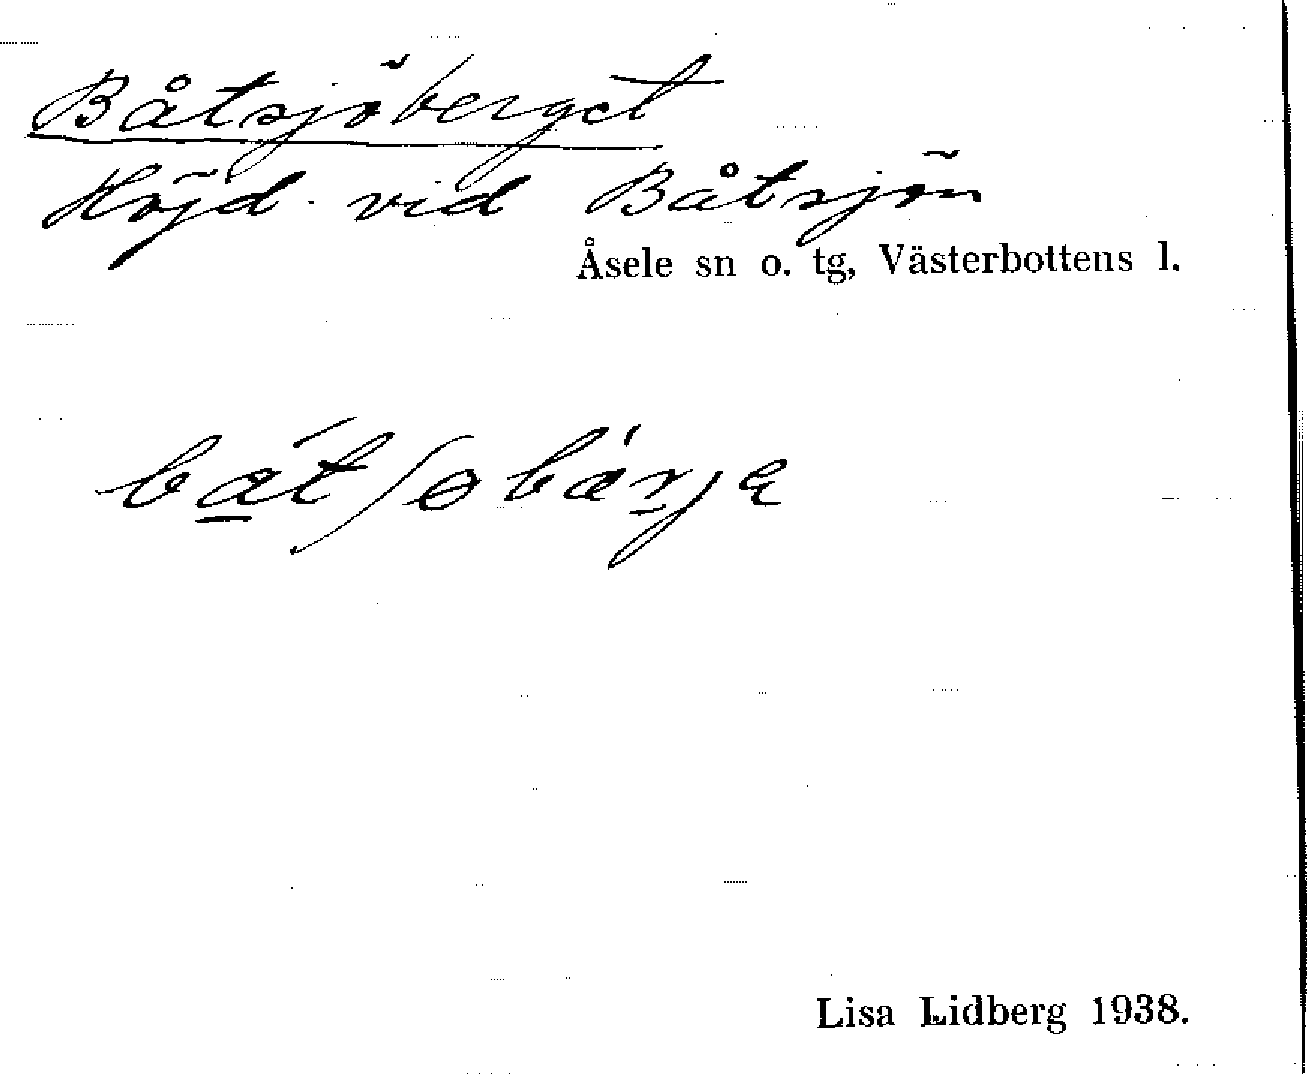 Båtsjöberget
Höjd vid Båtsjön
Åsele sn o. tg, Västerbottens l.
Lisa Lidberg 1938.